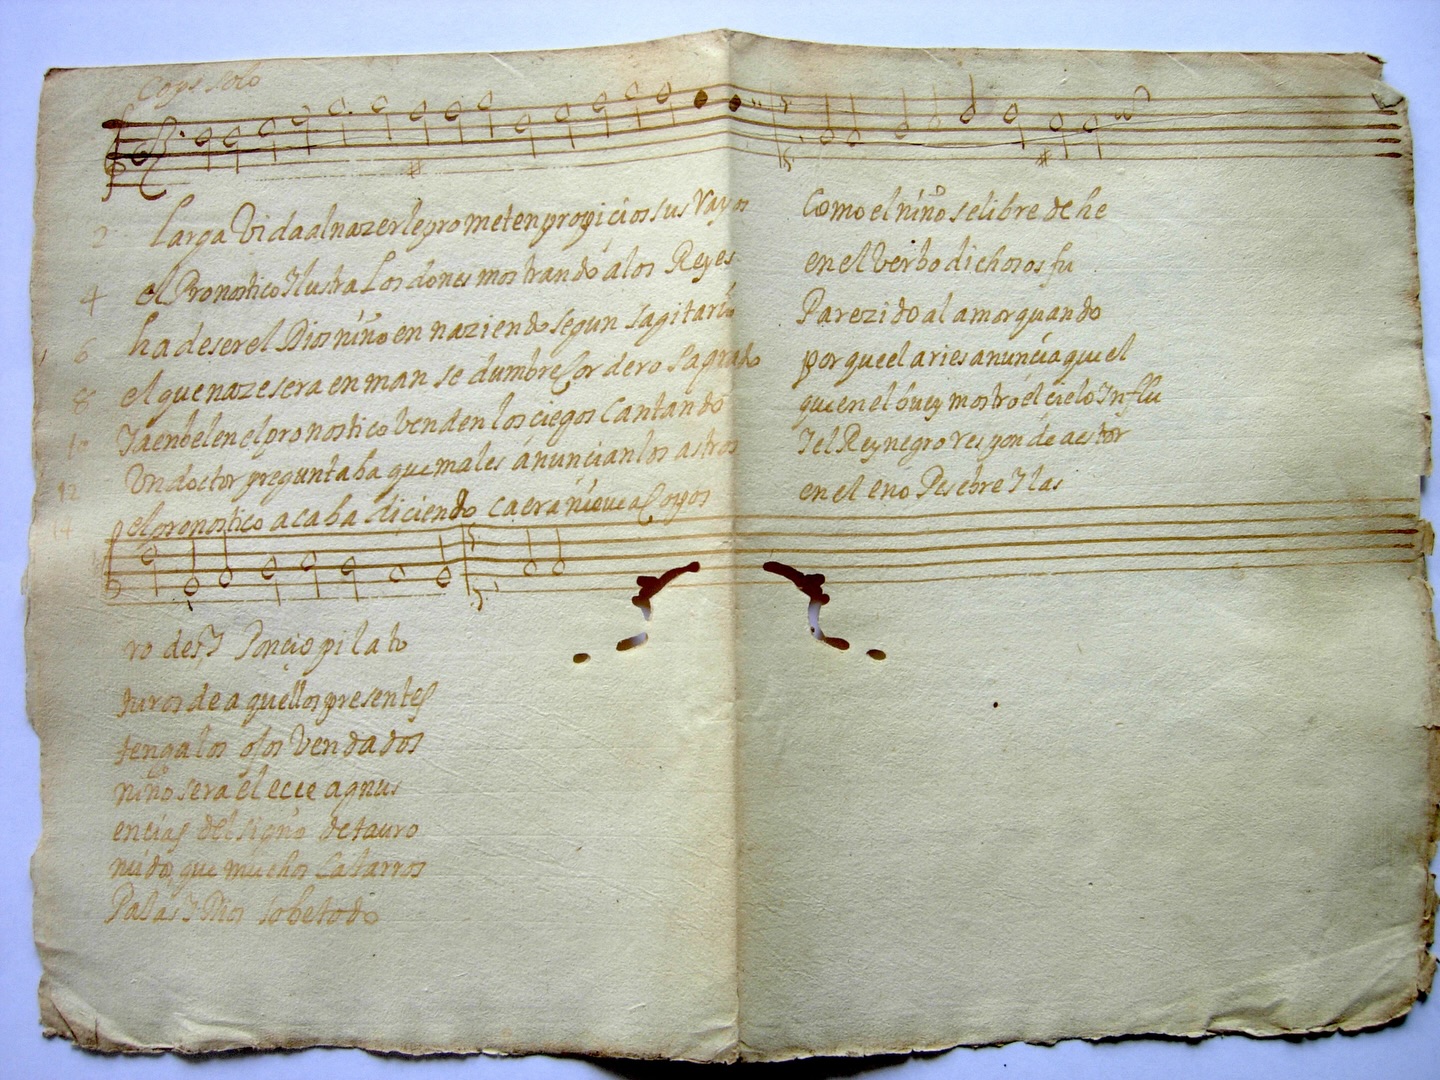 Cops solo
2 larga Vida al nazer le prometen propicios sus Rayos Como el niño se libre de he
4 el Pronostico Ilustra Los dones mostrando a los Reyes en el Verbo dichosos fu
6 ha de ser el Dios niño en naziendo segun sagitario Parezido al amor quando
8 el que naze sera en mansedumbre Cordero Sagrado porque el aries anuncia que el
10 Ia en belen el pronostico venden los ciegos Cantando que en el buey mostró el cielo Influ
12 Un doctor preguntaba que males anuncian los astros I el Rey negro responde aestor
14 el pronostico acaba diciendo caera nieue a Copos en el eno Pesebre I las
ro des I Poncio pilato
turos de a quellos presentes
tenga los ojos Vendados
niño sera el ecce agnus
encias del signo de tauro
nudo, que muchos Catarros
Pajas I Dios sobe todo